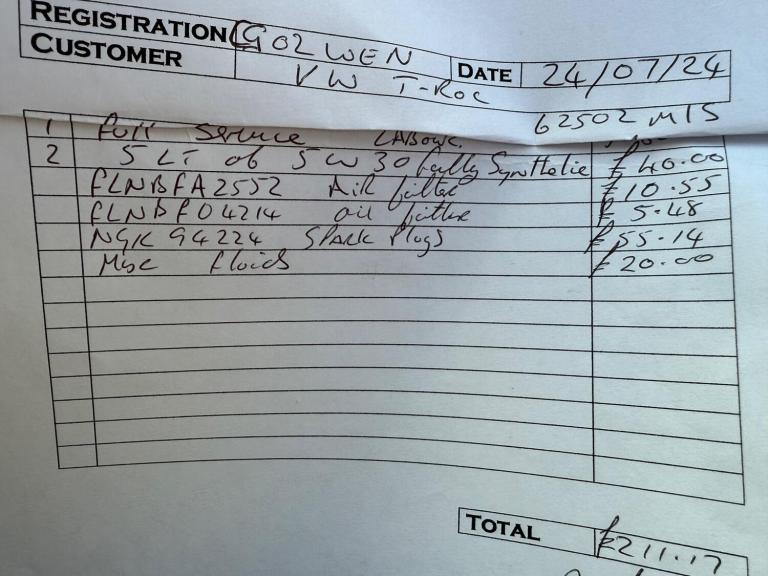 REGISTRATION GO2 WEN
CUSTOMER VW T-Roc DATE 24/07/24
62502 MIS
1 Full Service LABOUR.
2 5 LT of 5W30 fully Synthetic £40.00
FLNBFA2552 Air filter £10.55
FLNBFO4214 oil filter £5.48
NGK 94224 SPARK Plugs £55.14
Misc fluids £20.00
TOTAL £211.17